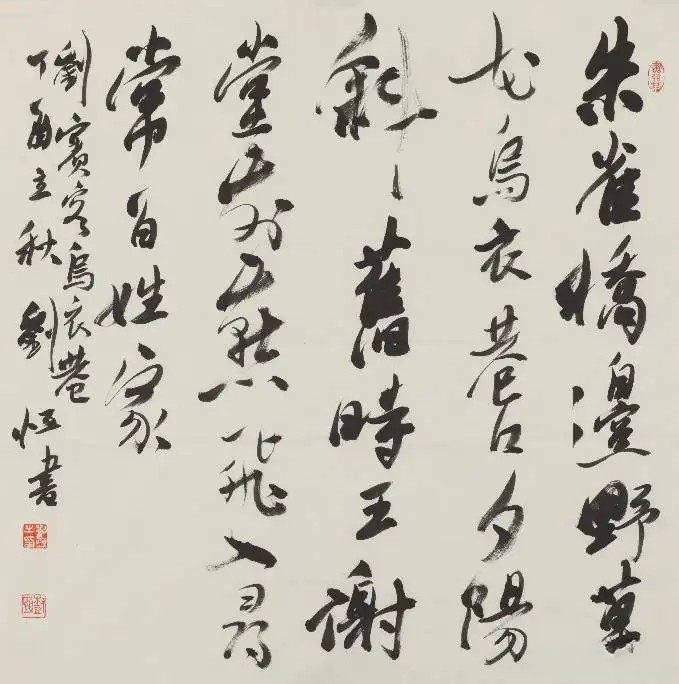 朱雀橋邊野草
花烏衣巷口夕陽
斜舊時王謝
堂前燕飛入尋
常百姓家
劉賓客烏衣巷
丁酉立秋劉恒書